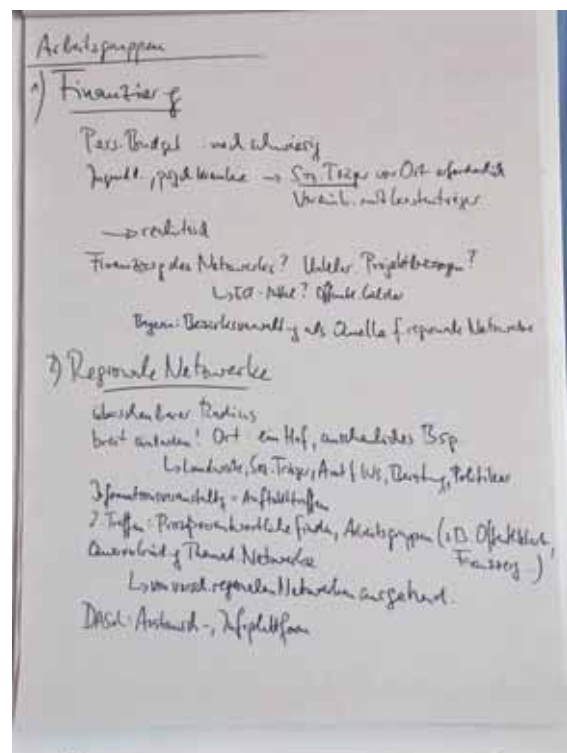 Arbeitsgruppen
1) Finanzierg
Pers. Budget noch schwierig
Jugendl., psych. Kranke → Soz. Träger vor Ort erforderlich
Vereinb. mit Kostenträger
→ rechtlich
Finanzierg des Netzwerkes? Projektbezogen?
Öffentl. Gelder
Bayern: Bezirksverwaltg als Quelle f. regionale Netzwerke
2) Regionale Netzwerke
überschaubarer Radius
breit einladen! Ort: ein Hof, anschauliches Bsp.
↳ Landwirte, Soz. Träger, Amt f. Beratung, Politiker
Informationsveranstaltg = Auftakttreffen
2. Treffen: Prozessverantwortliche finden, Arbeitsgruppen (z.B. Öffentlichk.,
Finanzierg...)
Themen d. Netzwerke
↳ von regionalen Netzwerken ausgehend.
DASoL: Austausch-, Infoplattform